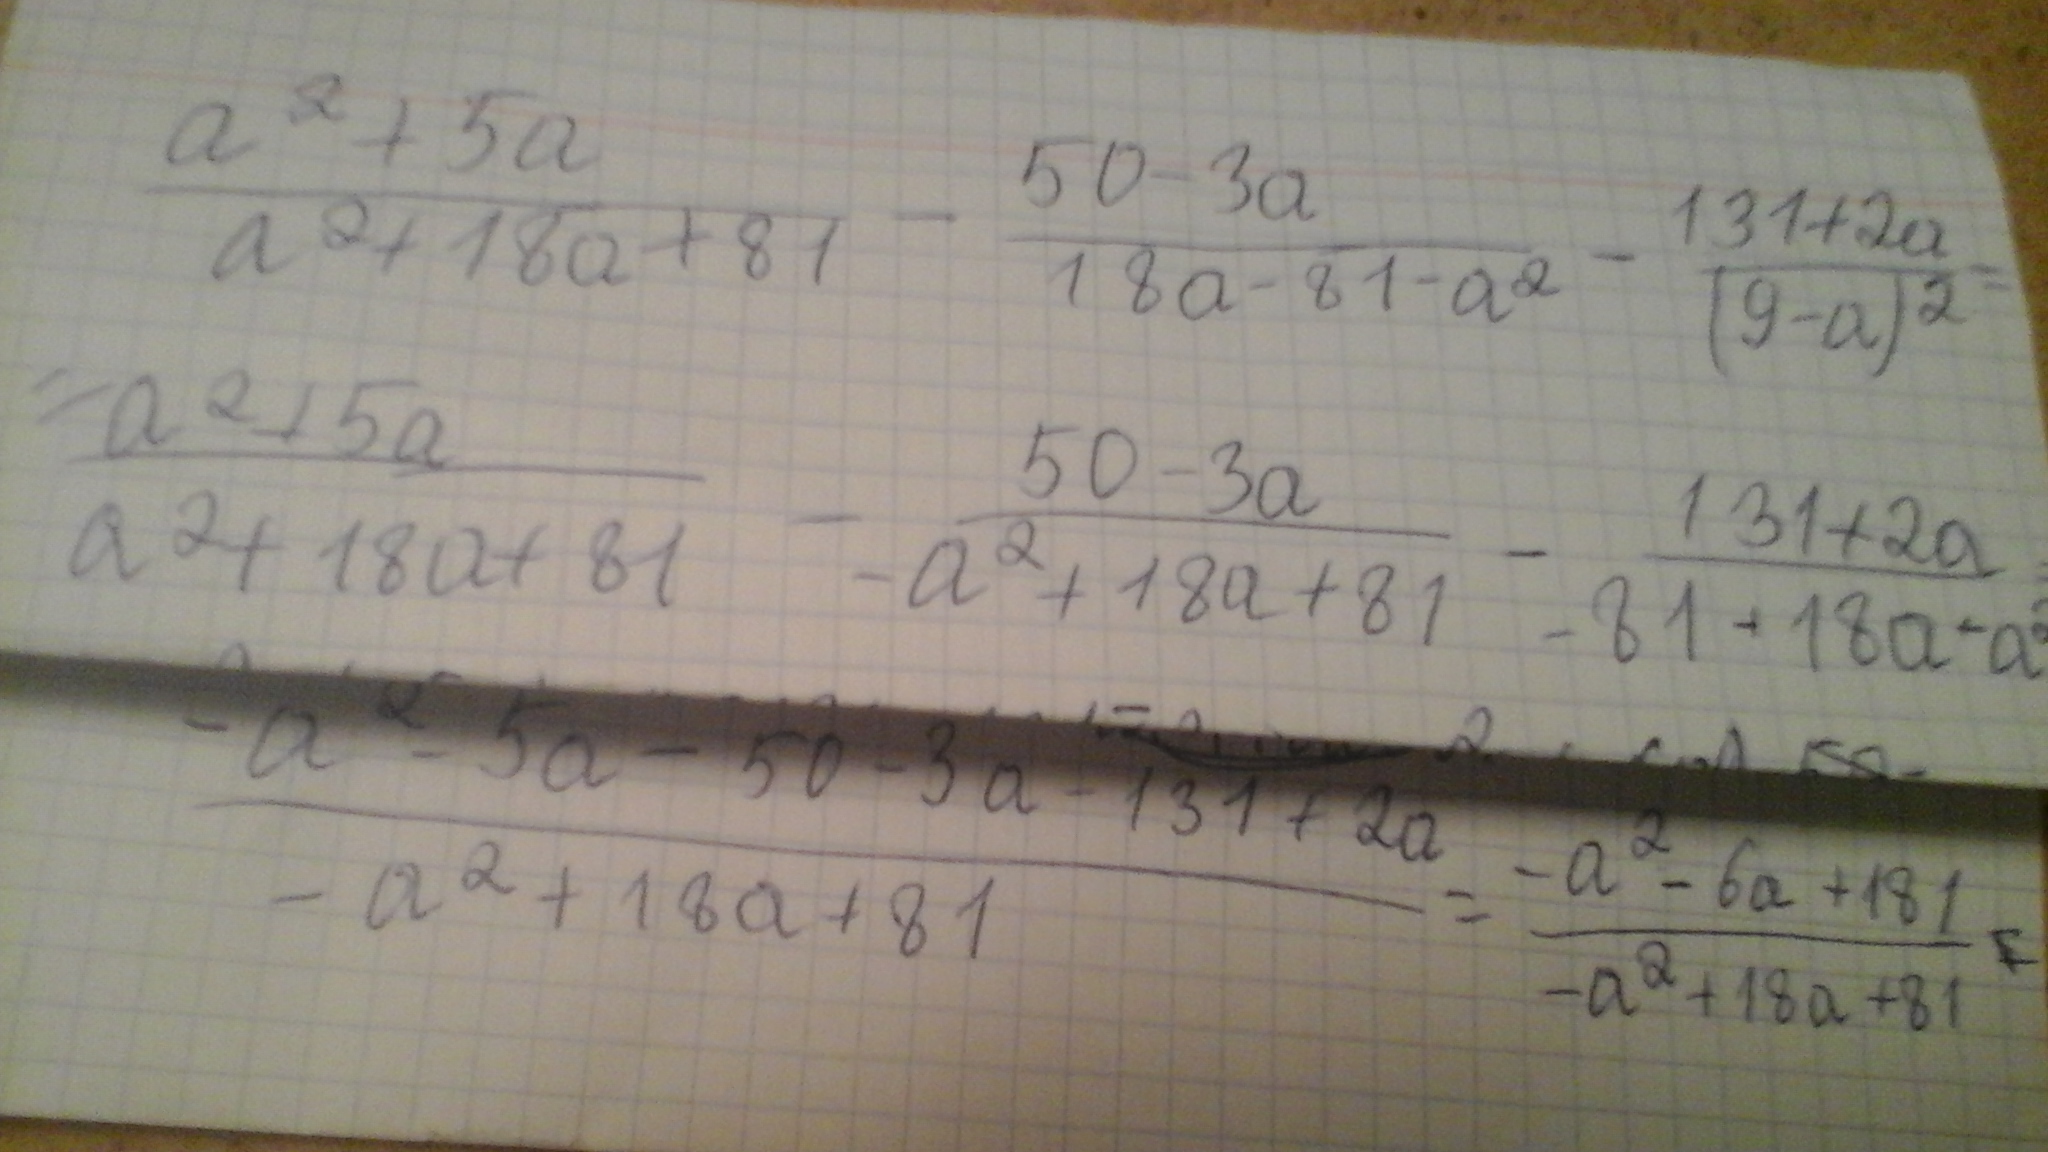 a² + 5a / a² + 18a + 81 - 50 - 3a / 18a - 81 - a² - 131 + 2a / (9 - a)² =
= a² + 5a / a² + 18a + 81 - 50 - 3a / -a² + 18a + 81 - 131 + 2a / -81 + 18a - a² =
-a² - 5a - 50 - 3a - 131 + 2a / -a² + 18a + 81 = -a² - 6a + 181 / -a² + 18a + 81 =